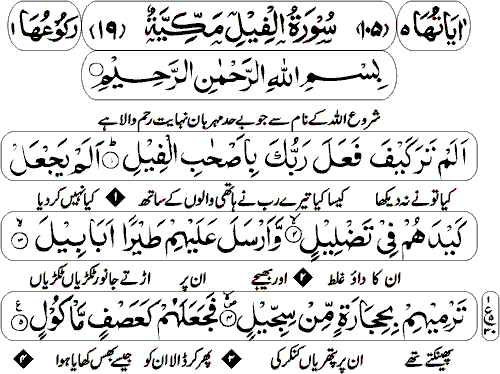 اٰیَاتُهَا ٥ (١٠٥) سُوْرَةُ الْفِيْلِ مَكِّيَّةٌ (١٩) رُكُوْعُهَا ١
بِسْمِ اللهِ الرَّحْمٰنِ الرَّحِيْمِ
شروع اللہ کے نام سے جو بے حد مہربان نہایت رحم والا ہے
اَلَمْ تَرَ كَيْفَ فَعَلَ رَبُّكَ بِاَصْحٰبِ الْفِيْلِ ۝١ اَلَمْ يَجْعَلْ
کیا تو نے نہ دیکھا کیسا کیا تیرے رب نے ہاتھی والوں کے ساتھ ۱ کیا نہیں کر دیا
كَيْدَهُمْ فِيْ تَضْلِيْلٍ ۝٢ وَّاَرْسَلَ عَلَيْهِمْ طَيْرًا اَبَابِيْلَ ۝٣
ان کا داؤ غلط ۲ اور بھیجے ان پر اڑتے جانور ٹکڑیاں ٹکڑیاں
تَرْمِيْهِمْ بِحِجَارَةٍ مِّنْ سِجِّيْلٍ ۝٤ فَجَعَلَهُمْ كَعَصْفٍ مَّاْكُوْلٍ ۝٥
پھینکتے تھے ان پر پتھریاں کنکر کی ۳ پھر کر ڈالا ان کو جیسے بھس کھایا ہوا ۴